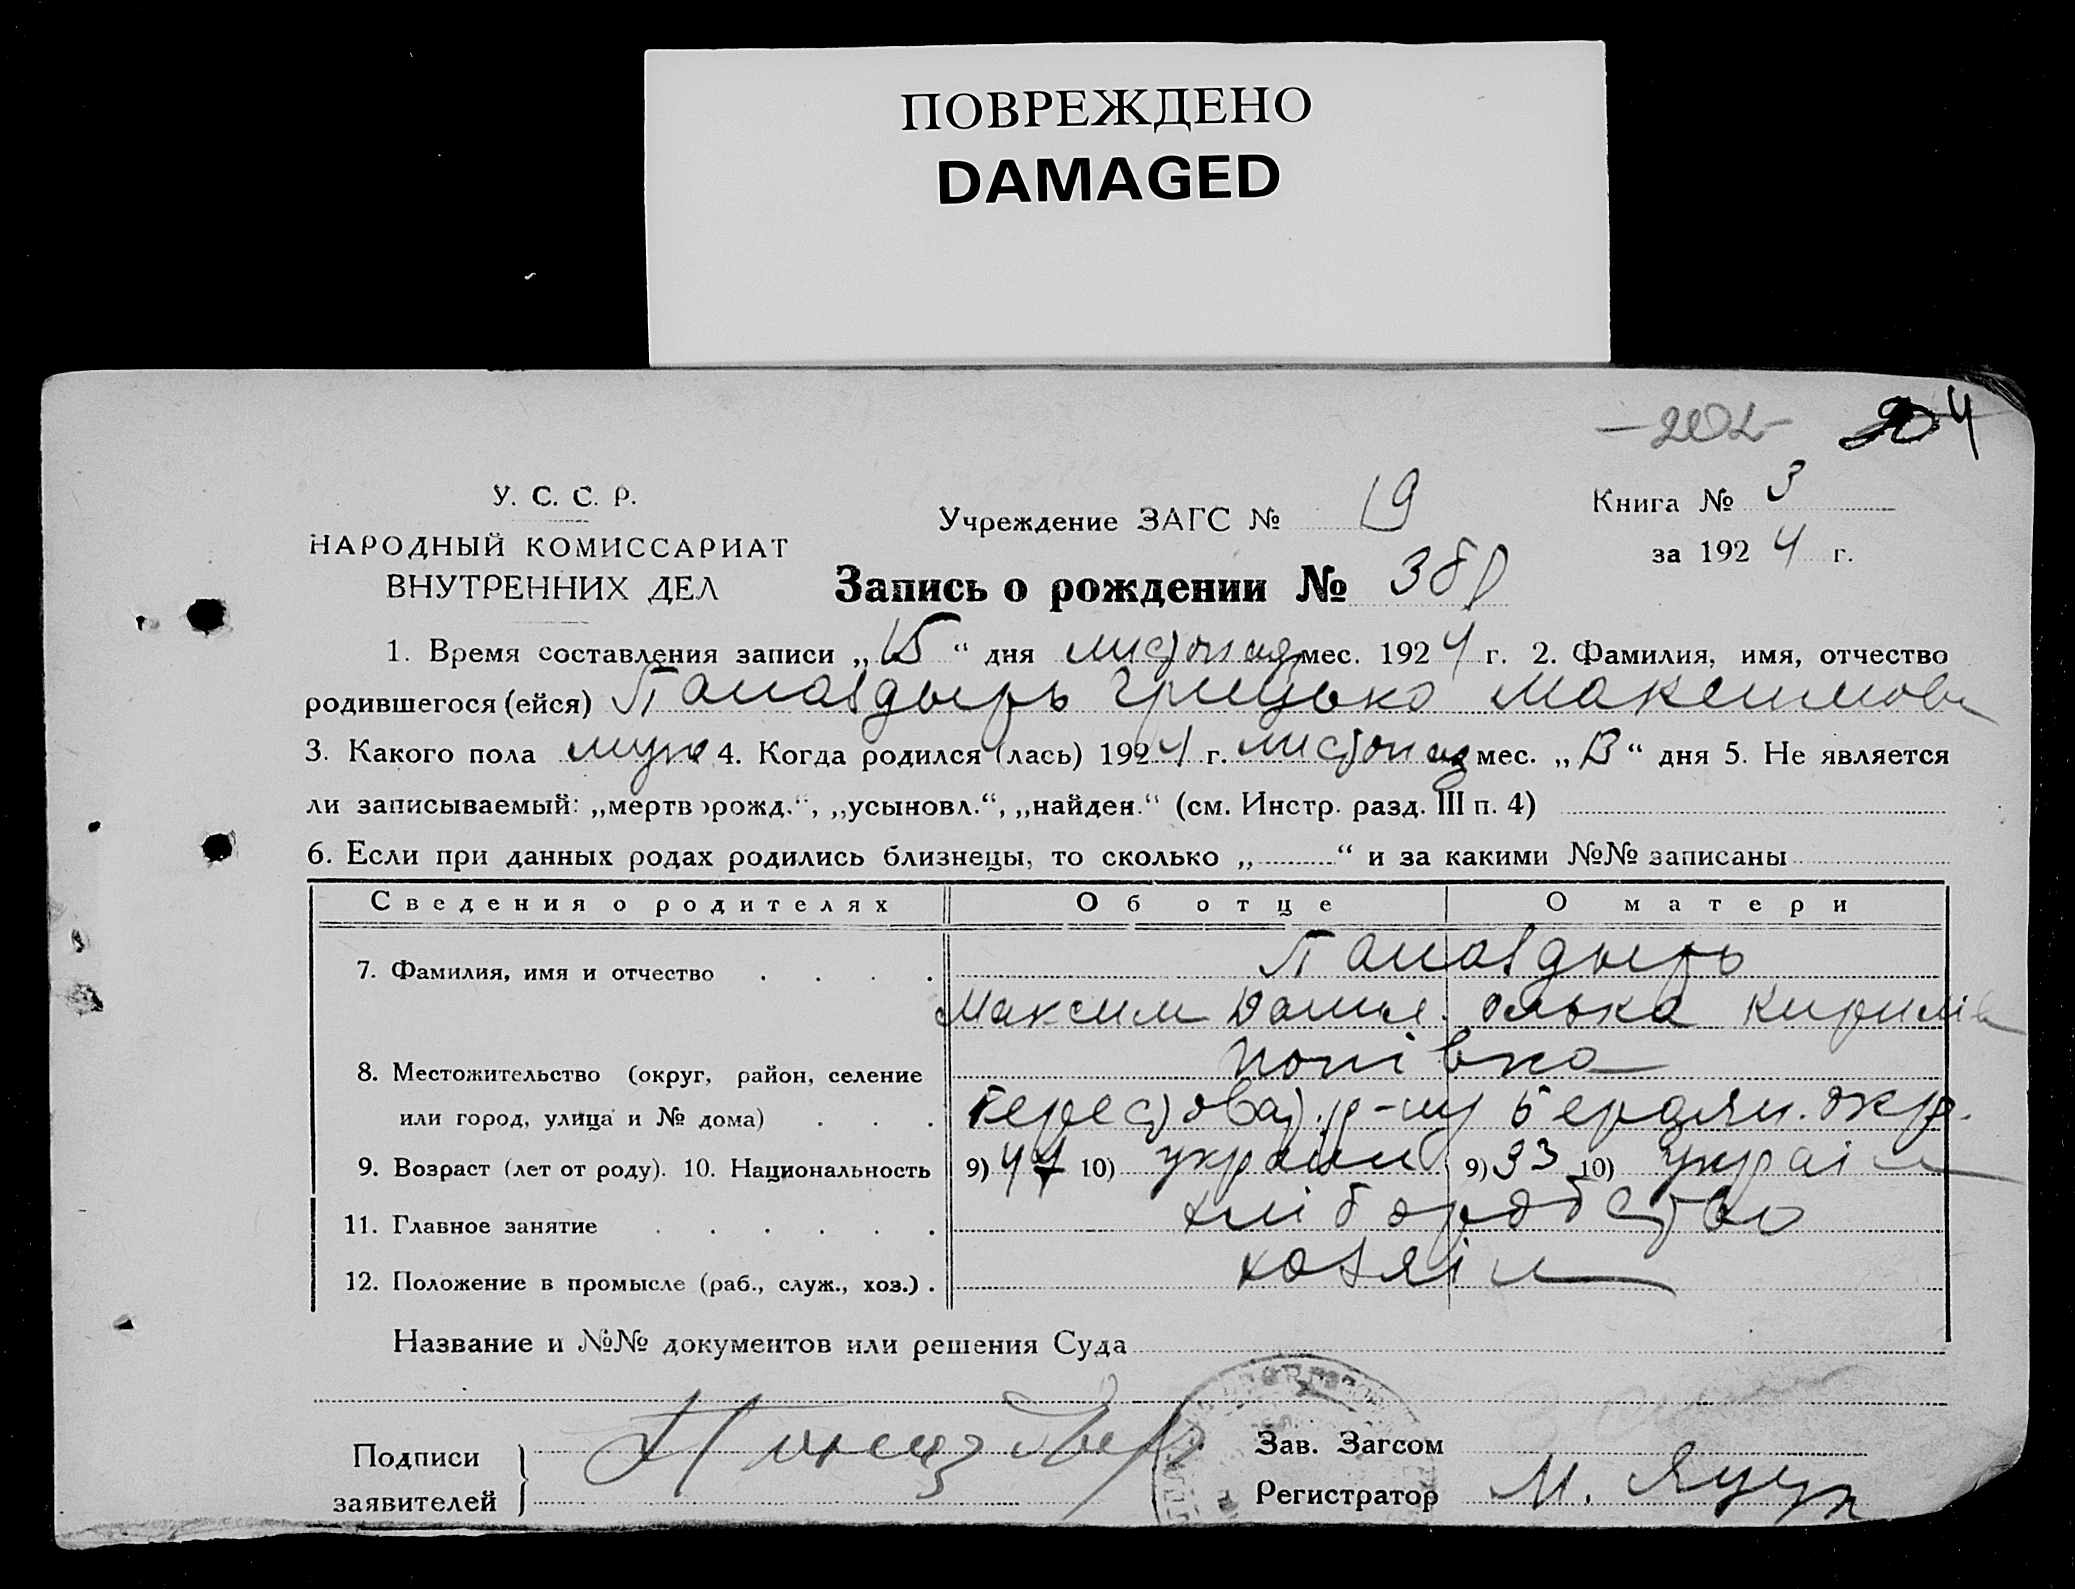 ПОВРЕЖДЕНО
DAMAGED
-202- 204
У. С. С. Р.
НАРОДНЫЙ КОМИССАРИАТ
ВНУТРЕННИХ ДЕЛ
Учреждение ЗАГС № 19
Книга № 3
за 1924 г.
Запись о рождении №
1. Время составления записи „15“ дня листопад мес. 1924 г. 2. Фамилия, имя, отчество
родившегося (ейся) Грицько Максимов
3. Какого пола муж 4. Когда родился (лась) 1924 г. листопад мес. „13“ дня 5. Не является
ли записываемый: „мертворожд.“, „усыновл.“, „найден.“ (см. Инстр. разд. III п. 4)
6. Если при данных родах родились близнецы, то сколько „ “ и за какими №№ записаны
Сведения о родителях Об отце О матери
7. Фамилия, имя и отчество
Максим Данил. Олька Кирилів
8. Местожительство (округ, район, селение Попівка
или город, улица и № дома) Берестоват. р-ну Бердян. окр.
9. Возраст (лет от роду). 10. Национальность 9) 47 10) україн 9) 33 10) україн
11. Главное занятие хліборобство
12. Положение в промысле (раб., служ., хоз.) хозяін
Название и №№ документов или решения Суда
Подписи
заявителей
Зав. Загсом
Регистратор М.